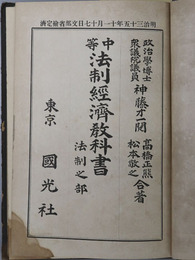 明治三十五年十一月十七日文部省檢定濟
政治學博士
衆議院議員
神藤才一閲
高橋正熊
松本敬之
合著
中等
法制經濟教科書
法制之部
東京
國光社